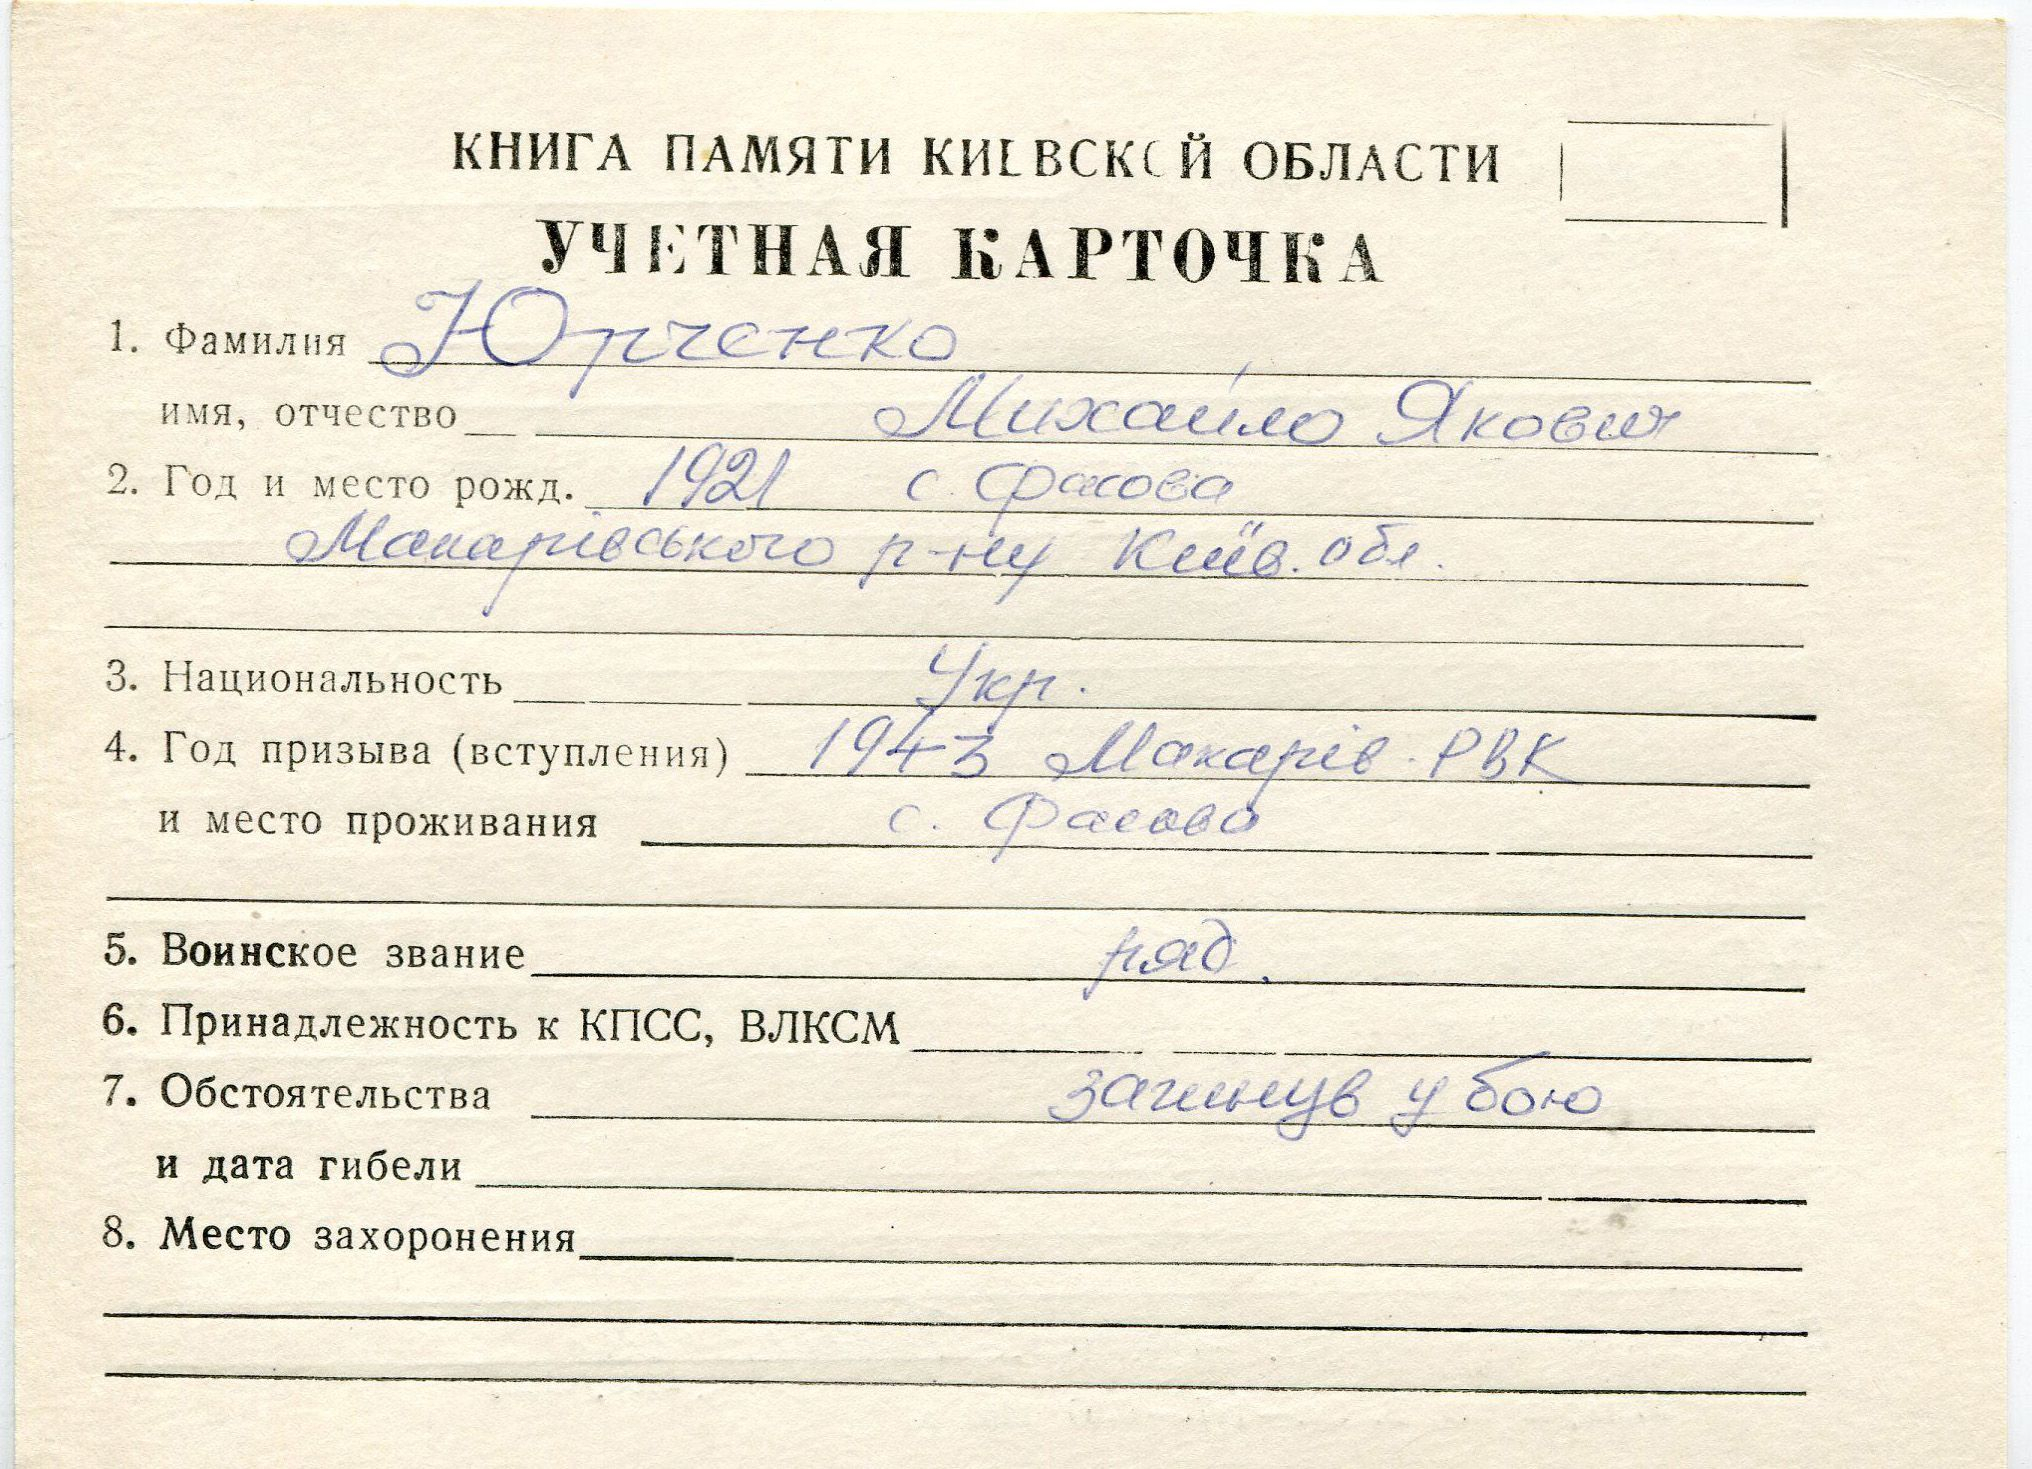 КНИГА ПАМЯТИ КИЕВСКОЙ ОБЛАСТИ
УЧЕТНАЯ КАРТОЧКА
1. Фамилия Юрченко
имя, отчество Михайло Якович
2. Год и место рожд. 1921 с. Фасова
Макарівського р-ну Київ. обл.
3. Национальность Укр.
4. Год призыва (вступления) 1943 Макарів. РВК
и место проживания с. Фасова
5. Воинское звание ряд.
6. Принадлежность к КПСС, ВЛКСМ
7. Обстоятельства загинув у бою
и дата гибели
8. Место захоронения